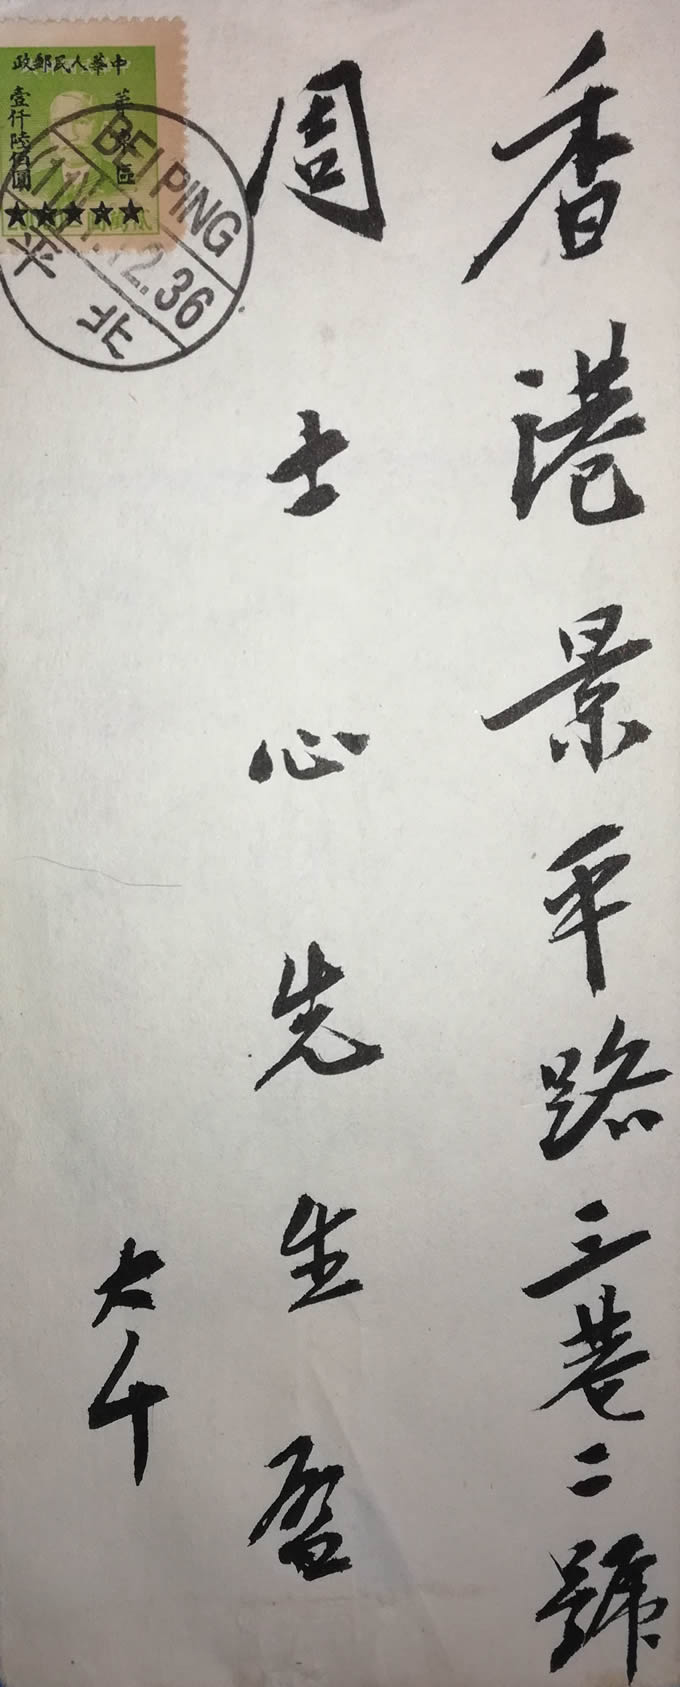 香港景平路三巷二號
周士心先生啓
大千
中華人民郵政
華東區
壹仟陸佰圓
BEIPING
2.36
北平